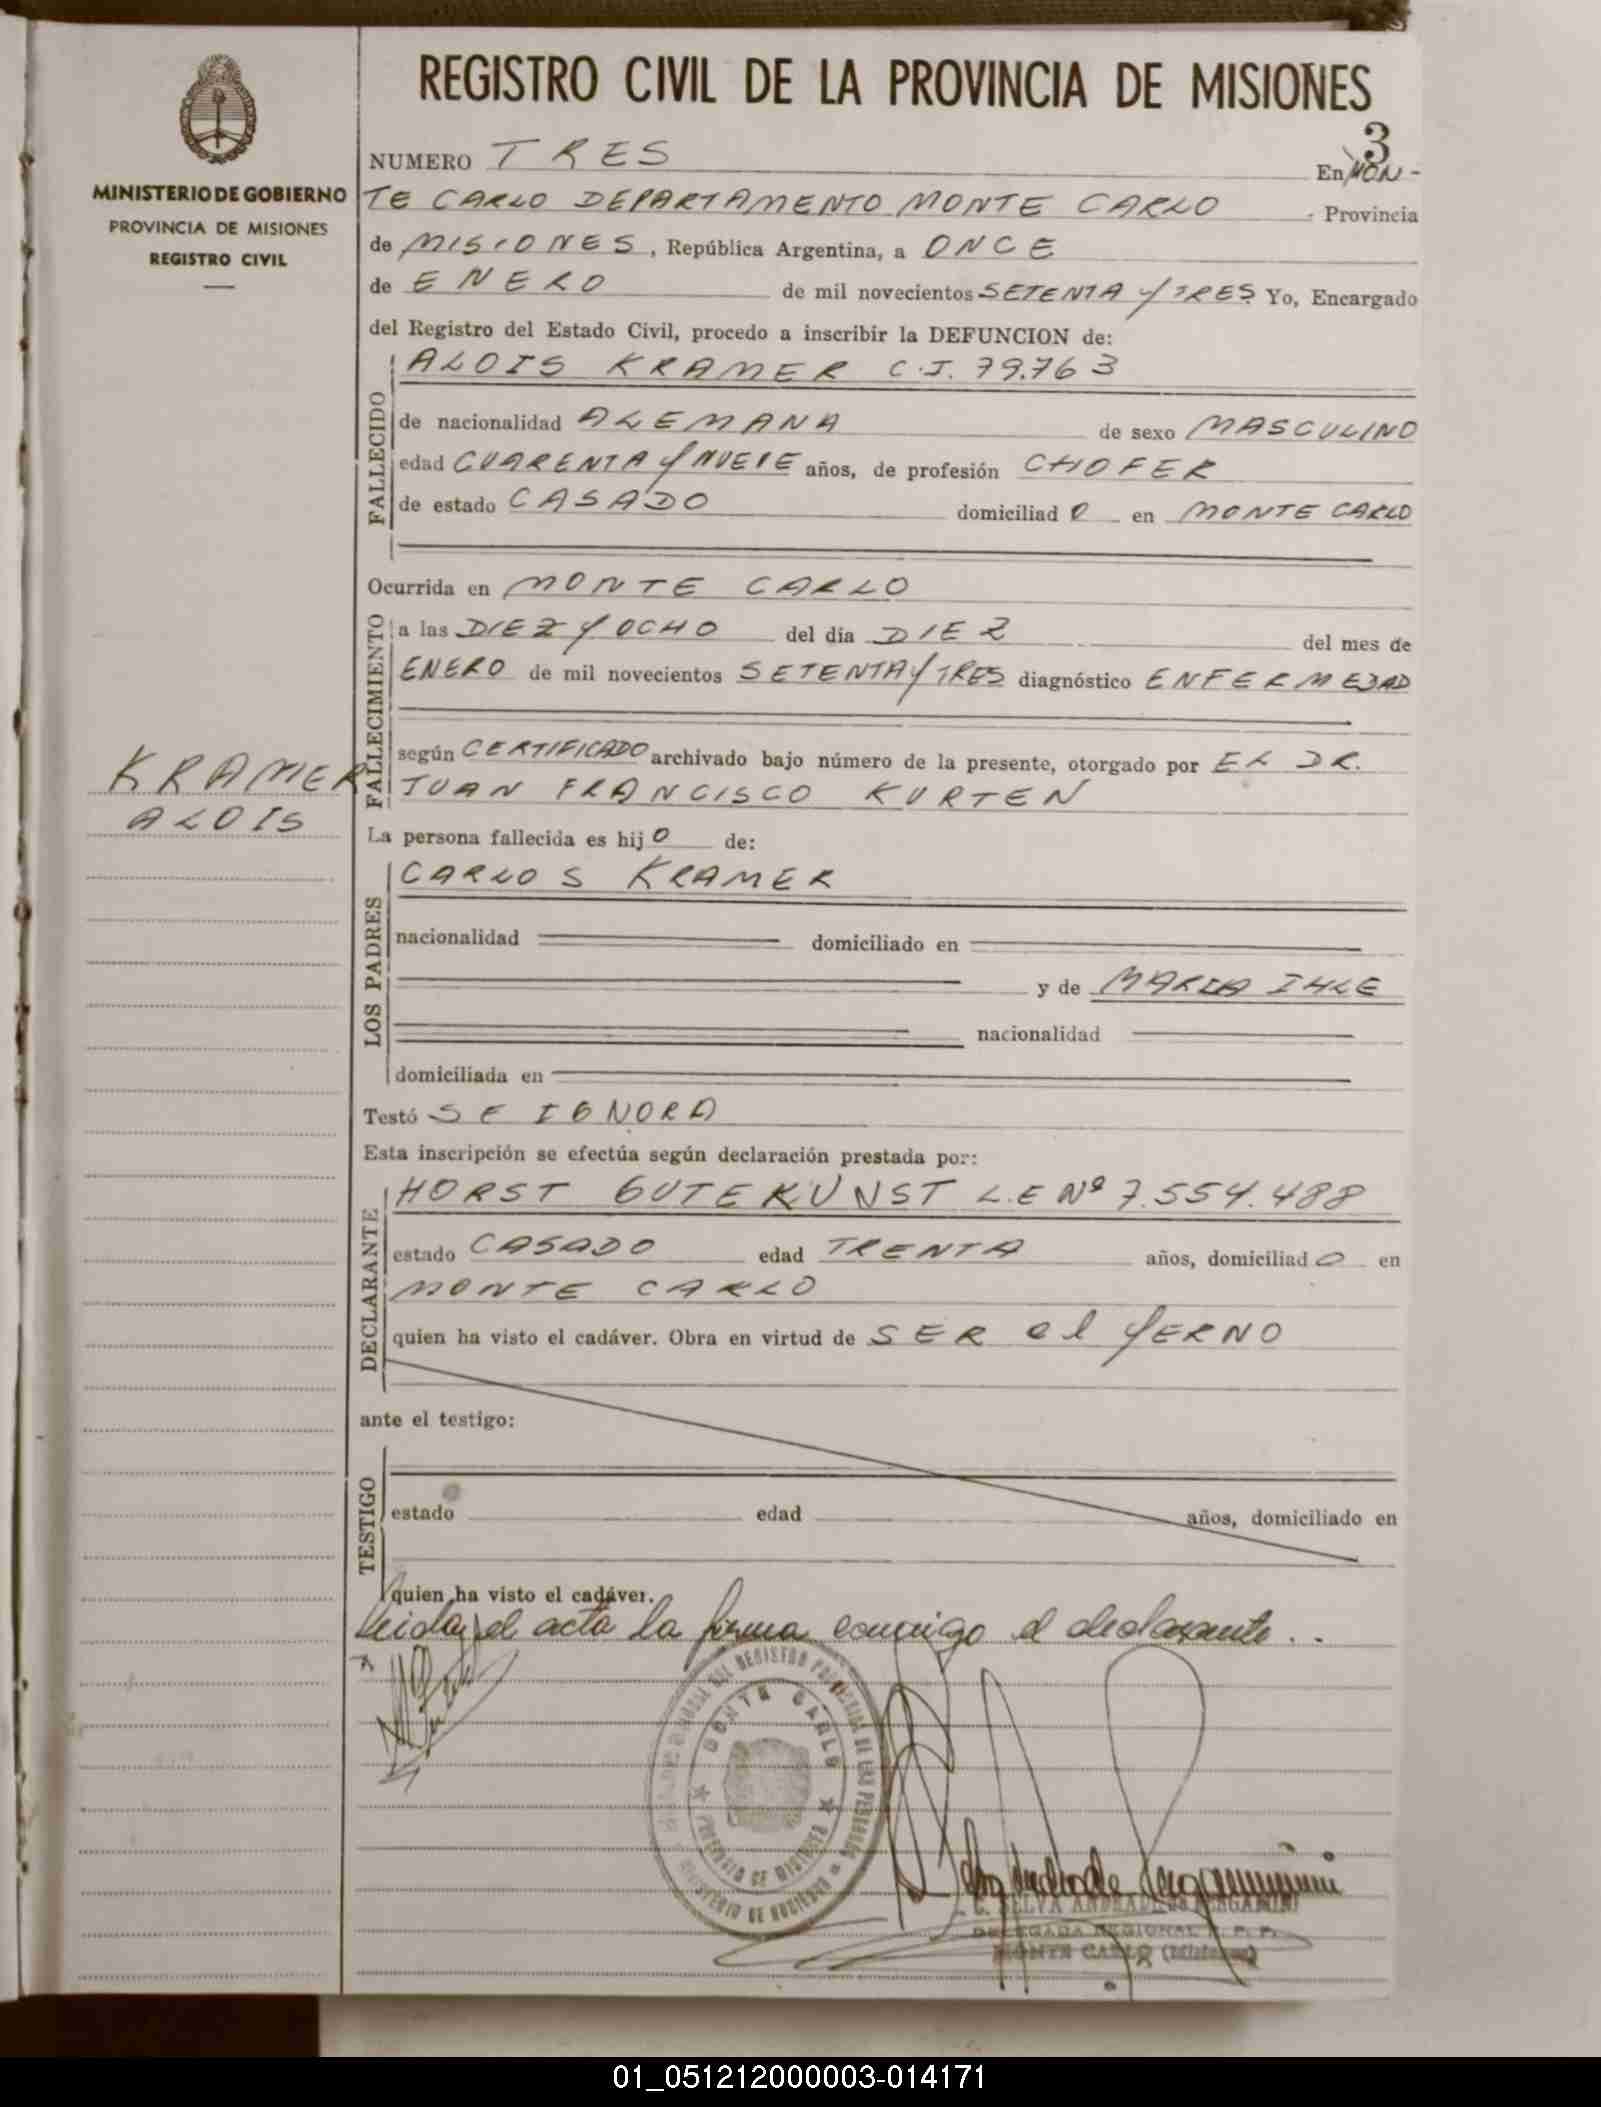 REGISTRO CIVIL DE LA PROVINCIA DE MISIONES
3
MINISTERIO DE GOBIERNO
PROVINCIA DE MISIONES
REGISTRO CIVIL
NUMERO TRES En MON-
TE CARLO DEPARTAMENTO MONTE CARLO Provincia
de MISIONES, República Argentina, a ONCE
de ENERO de mil novecientos SETENTA Y TRES Yo, Encargado
del Registro del Estado Civil, procedo a inscribir la DEFUNCION de:
FALLECIDO
ALOIS KRAMER C.I. 79.763
de nacionalidad ALEMANA de sexo MASCULINO
edad CUARENTA Y NUEVE años, de profesión CHOFER
de estado CASADO domiciliad O en MONTE CARLO
Ocurrida en MONTE CARLO
FALLECIMIENTO
a las DIEZ Y OCHO del día DIEZ del mes de
ENERO de mil novecientos SETENTA Y TRES diagnóstico ENFERMEDAD
según CERTIFICADO archivado bajo número de la presente, otorgado por EL DR.
JUAN FRANCISCO KURTEN
KRAMER
ALOIS
La persona fallecida es hij O de:
LOS PADRES
CARLOS KRAMER
nacionalidad domiciliado en
y de MARIA IHLE
nacionalidad
domiciliada en
Testó SE IGNORA
Esta inscripción se efectúa según declaración prestada por:
DECLARANTE
HORST GUTEKUNST L.E Nº 7.554.488
estado CASADO edad TRENTA años, domiciliad O en
MONTE CARLO
quien ha visto el cadáver. Obra en virtud de SER el YERNO
ante el testigo:
TESTIGO
estado edad años, domiciliado en
quien ha visto el cadáver.
Leida el acta la firma conmigo el declarante..
MONTE CARLO
PROVINCIA DE MISIONES
MINISTERIO DE GOBIERNO
C. SELVA ANDRADE de BERGAMINI
DELEGADA REGIONAL R. P. P.
MONTE CARLO (Misiones)
01_051212000003-014171